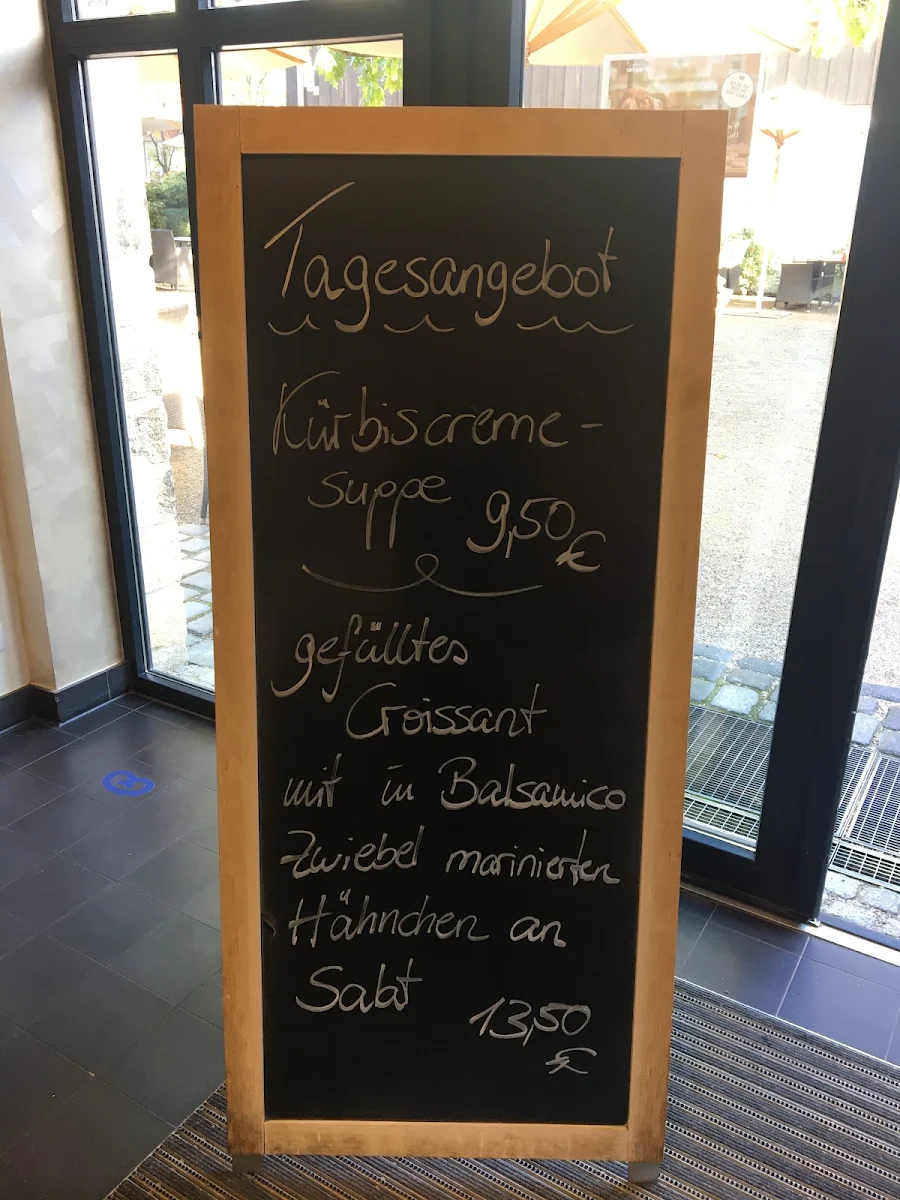 Tagesangebot
Kürbiscreme-
suppe 9,50 €
gefülltes
Croissant
mit in Balsamico
Zwiebel marinierten
Hähnchen an
Salat
13,50
€